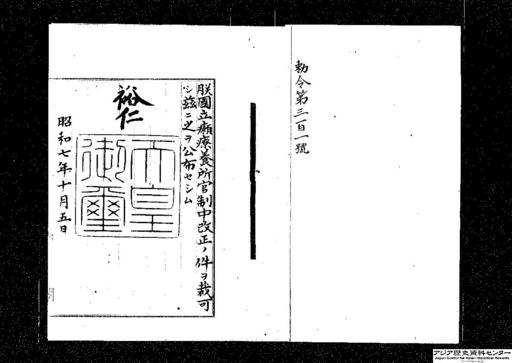 勅令第三百一號
朕國立癩療養所官制中改正ノ件ヲ裁可
シ茲ニ之ヲ公布セシム
裕仁
天皇御璽
昭和七年十月五日
アジア歴史資料センター
Japan Center for Asian Historical Records